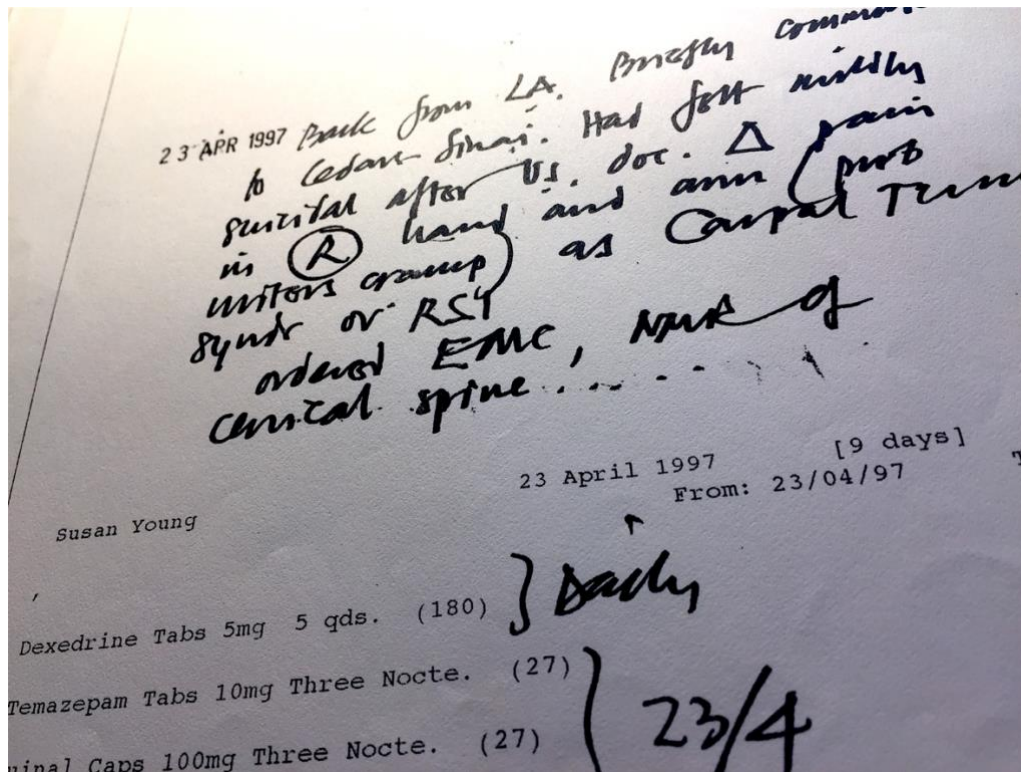 23 APR 1997 Back from LA. Briefly
to Cedars Sinai. Had felt mildly
suicidal after US. doc. Δ pain
in R hand and arm (prob
writers cramp) as Carpal
syndr or RSI
ordered EMG, NMR of
cervical spine......
23 April 1997 [9 days]
From: 23/04/97
Susan Young
Dexedrine Tabs 5mg 5 qds. (180) } Daily
Temazepam Tabs 10mg Three Nocte. (27)
Caps 100mg Three Nocte. (27)
23/4